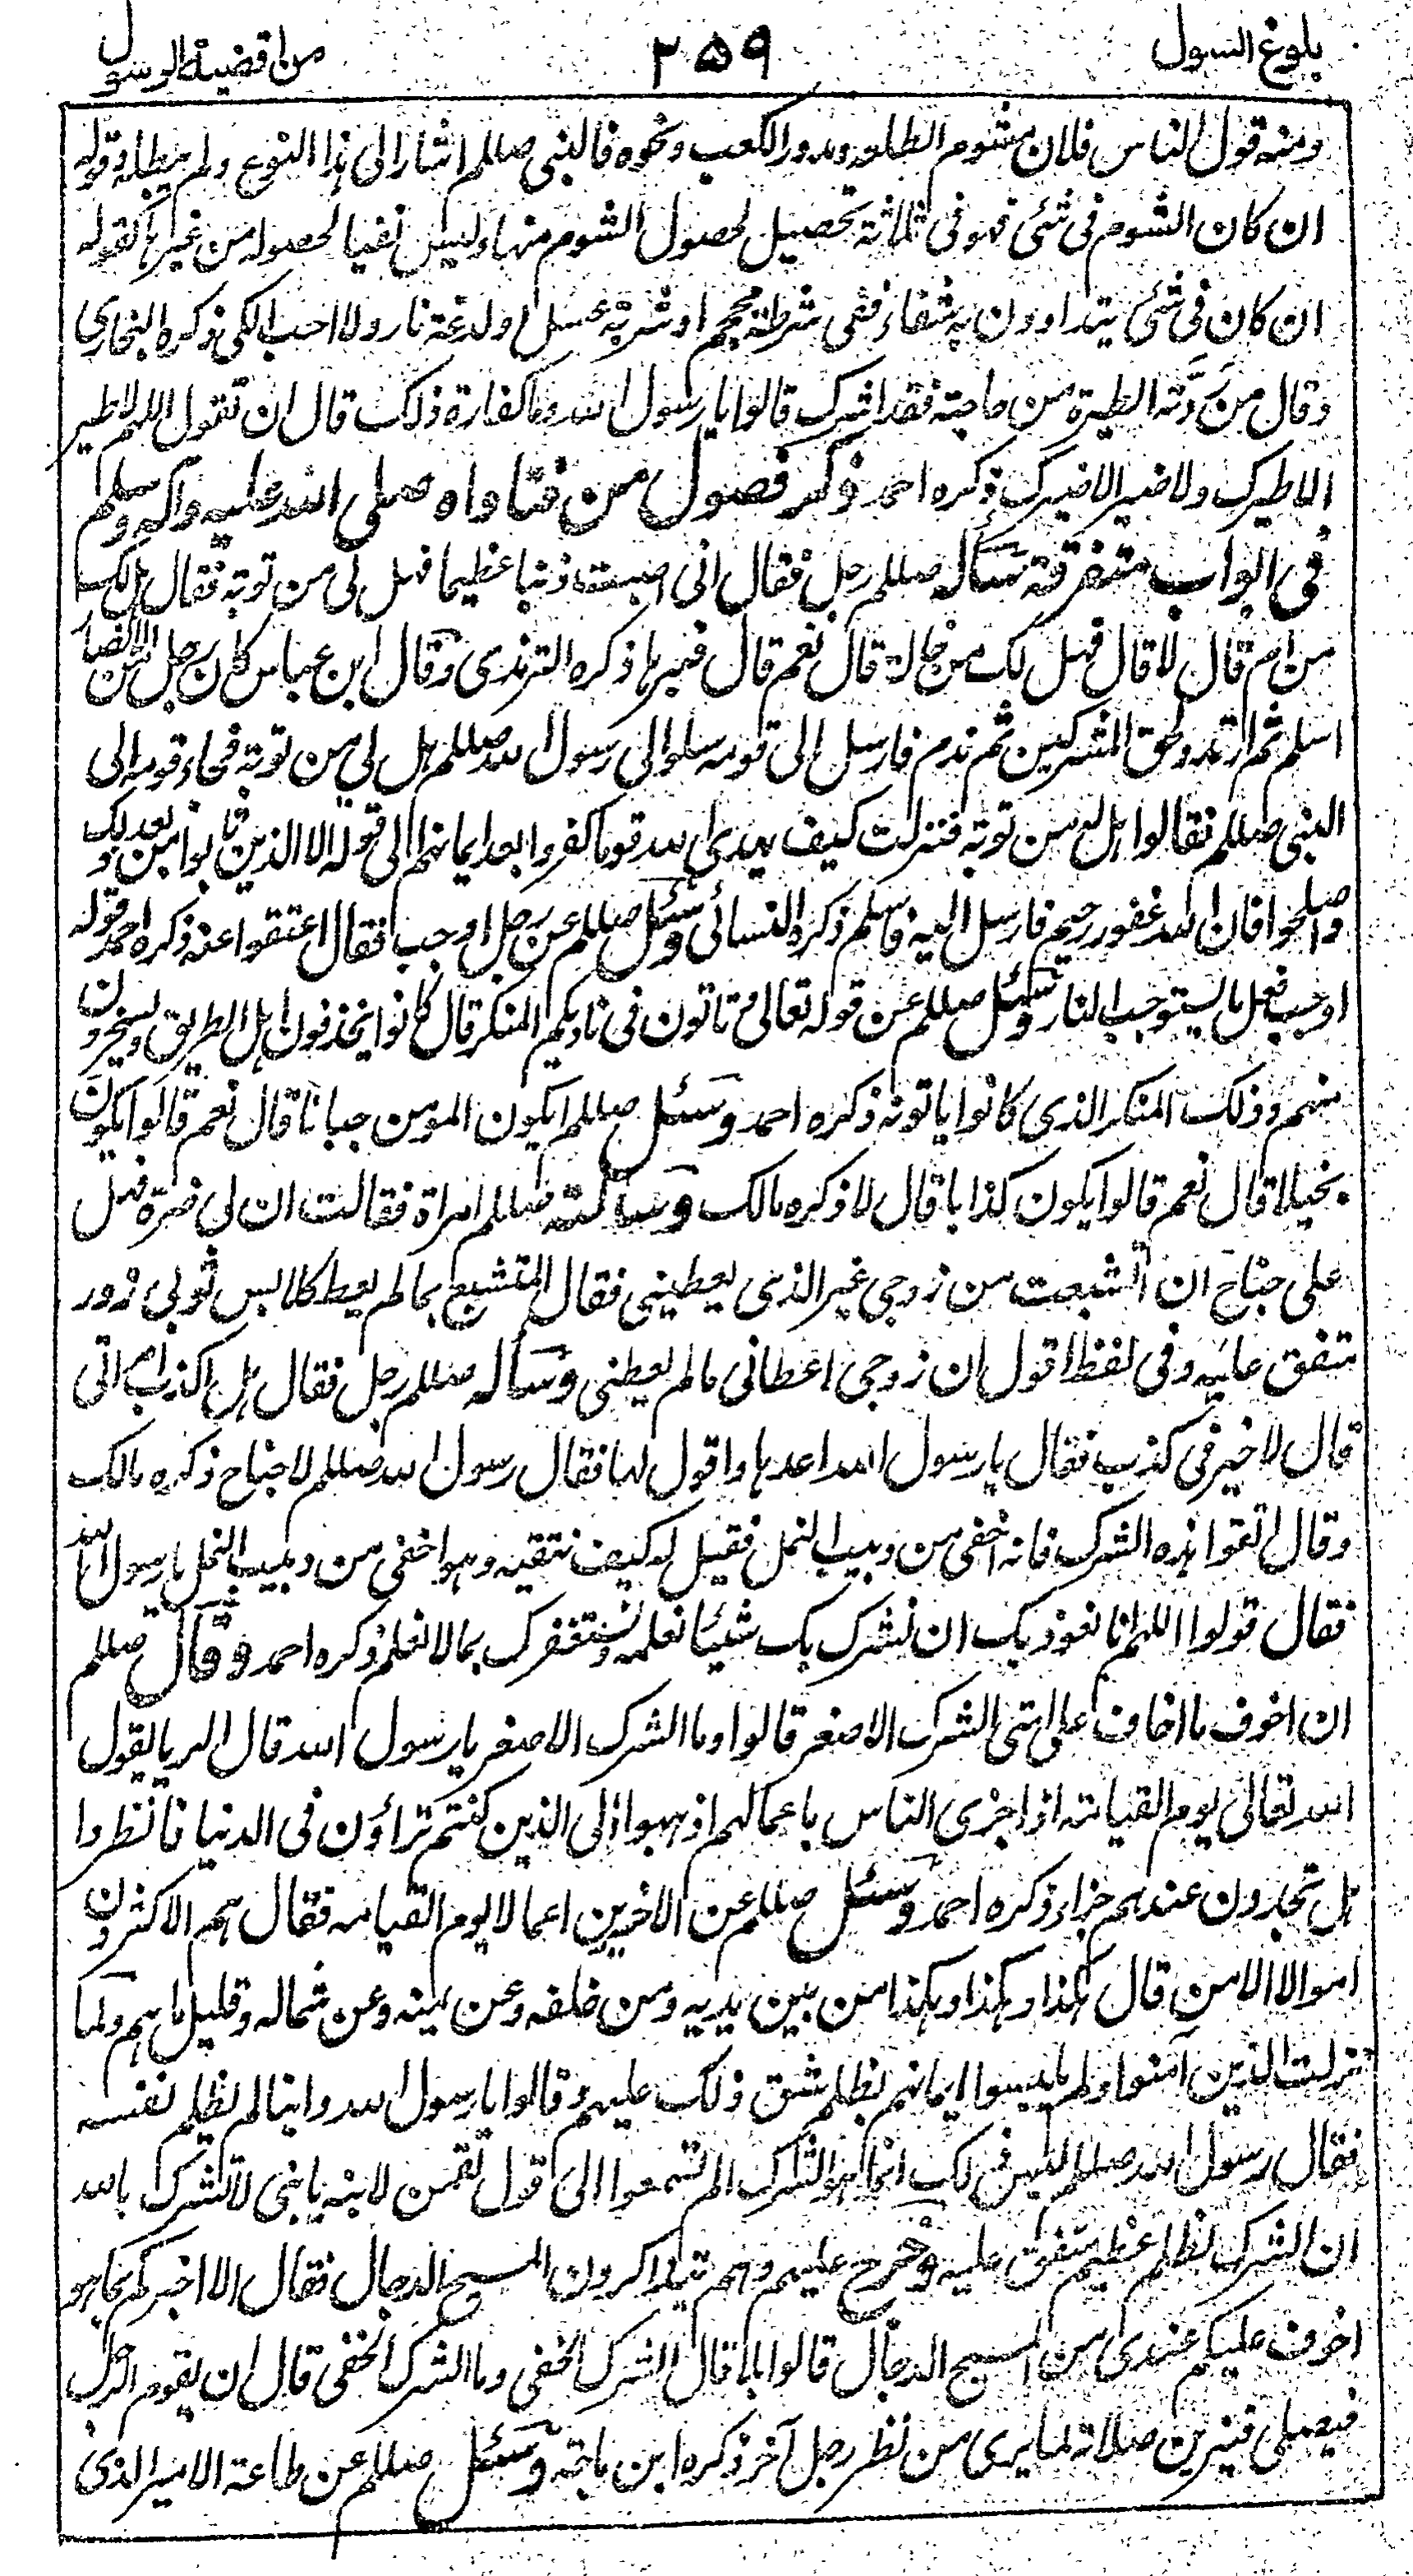 بلوغ السول ٢٥٩ من اقضية الرسول
ومنه قول الناس فلان مشوم الطلعه ومدور الكعب ونحوه فالنبي صللم اشار الى هذا النوع ولم يبطله وقوله
ان كان الشوم في شئ فهو في ثلاثة تحصيل لحصول الشوم منها وليس نفيا لحصوله من غيرها كقوله
ان كان في شئ تتداوون به شفاء ففي شرطة محجم او شربة عسل او لدغة نار ولا احب الكي ذكره البخاري
وقال من رَدَّته الطيرة من حاجته فقد اشرك قالوا يا رسول الله وما كفارة ذلك قال ان تقول اللهم لا طير
الا طيرك ولا خير الا خيرك ذكره احمد ذكر فصول من فتاواه صلى الله عليه وآله وسلم
في ابواب متفرقة سأله صللم رجل فقال اني اصبت ذنبا عظيما فهل لي من توبة فقال هل لك
من ام قال لا قال فهل لك من خالة قال نعم قال فبرها ذكره الترمذي وقال ابن عباس كان رجل من الانصار
اسلم ثم ارتد ولحق المشركين ثم ندم فارسل الى قومه سلوا لي رسول الله صللم هل لي من توبة فجاء قومه الى
النبي صللم فقالوا هل له من توبة فنزلت كيف يهدي الله قوما كفروا بعد ايمانهم الى قوله الا الذين تابوا من بعد ذلك
واصلحوا فان الله غفور رحيم فارسل اليه فاسلم ذكره النسائي وسئل صللم عن رجل اوجب فقال اعتقوا عنه ذكره احمد قوله
اوجب فعل ما يستوجب النار وسئل صللم عن قوله تعالى وتاتون في ناديكم المنكر قال كانوا يخذفون اهل الطريق ويسخرون
منهم وذلك المنكر الذي كانوا ياتونه ذكره احمد وسئل صللم ايكون المومن جبانا قال نعم قالوا ايكون
بخيلا قال نعم قالوا ايكون كذابا قال لا ذكره مالك وسألته صللم امراة فقالت ان لي ضرة فهل
على جناح ان اتشبعت من زوجي غير الذي يعطيني فقال المتشبع بما لم يعط كلابس ثوبي زور
متفق عليه وفي لفظ اقول ان زوجي اعطاني ما لم يعطني وسأله صللم رجل فقال هل اكذب امراتي
قال لا خير في كذب فقال يا رسول الله اعدها واقول لها فقال رسول الله صللم لا جناح ذكره مالك
وقال اتقوا هذه الشرك فانه اخفى من دبيب النمل فقيل له كيف نتقيه وهو اخفى من دبيب النمل يا رسول الله
فقال قولوا اللهم انا نعوذ بك ان نشرك بك شيئا نعلمه ونستغفرك بما لا نعلم ذكره احمد وقال صللم
ان اخوف ما اخاف على امتي الشرك الاصغر قالوا وما الشرك الاصغر يا رسول الله قال الريا يقول
الله تعالى يوم القيامة اذا جزى الناس باعمالهم اذهبوا الى الذين كنتم تراؤن في الدنيا فانظروا
هل تجدون عندهم جزاء ذكره احمد وسئل صللم عن الاخسرين اعمالا يوم القيامه فقال هم الاكثرون
اموالا الا من قال هكذا وهكذا وهكذا من بين يديه ومن خلفه وعن يمينه وعن شماله وقليل ما هم ولما
نزلت الذين آمنوا ولم يلبسوا ايمانهم بظلم شق ذلك عليهم وقالوا يا رسول الله واينا لم يظلم نفسه
فقال رسول الله صللم ليس ذلك انما هو الشرك الم تسمعوا الى قول لقمن لابنه يا بني لا تشرك بالله
ان الشرك لظلم عظيم متفق عليه وخرج عليهم وهم يتذاكرون المسيح الدجال فقال الا اخبركم بما هو
اخوف عليكم عندي من المسيح الدجال قالوا بلى قال الشرك الخفي وما الشرك الخفي قال ان يقوم الرجل
فيصلي فيزين صلاته لما يرى من نظر رجل آخر ذكره ابن ماجة وسئل صللم عن طاعة الامير الذي